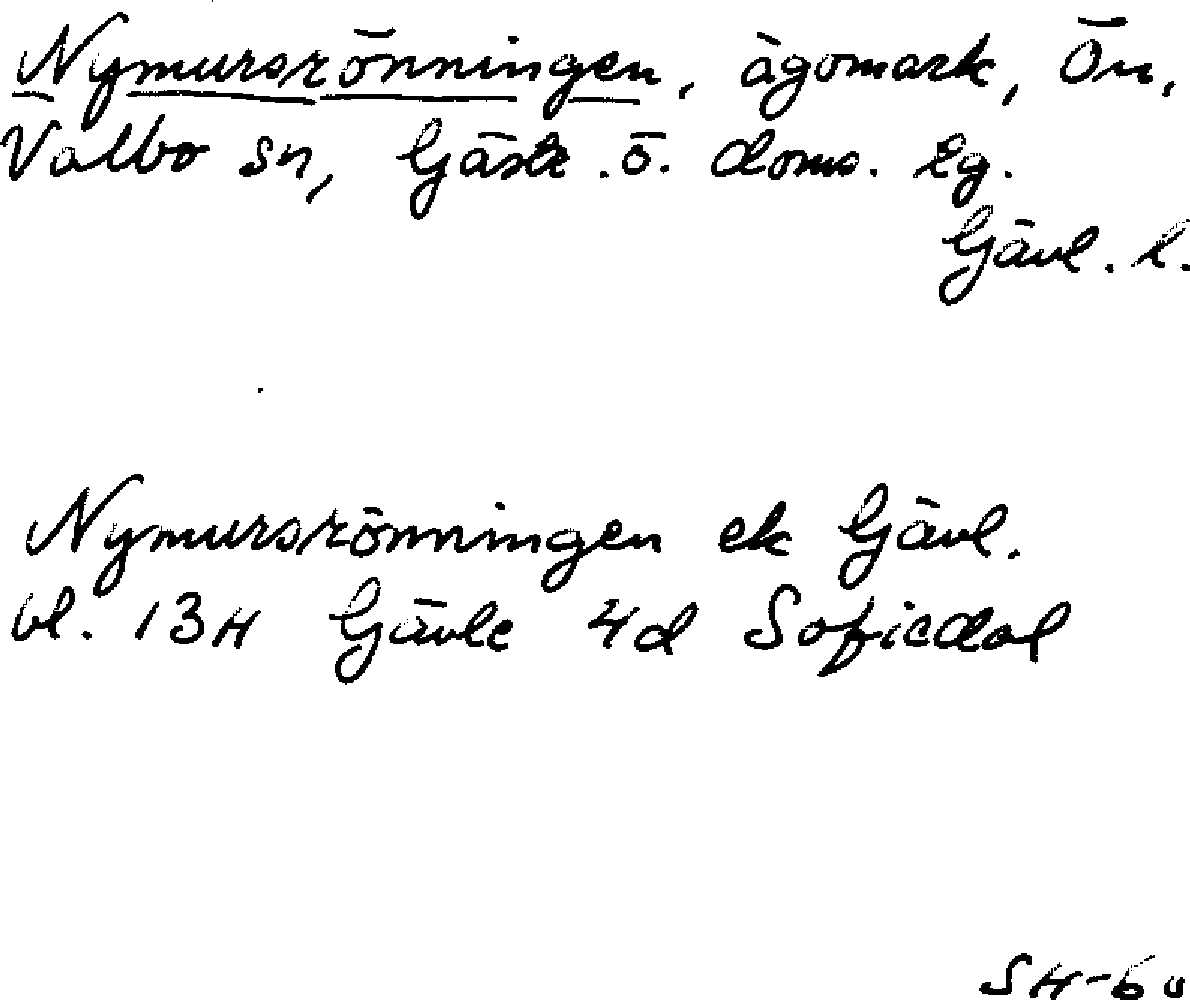 Nymursrönningen, ägomark, Ön,
Valbo sn, Gästr. ö. doms. tg.
Gävl. l.
Nymursrönningen ek Gävl.
bl. 13H Gävle 4d Sofiedal